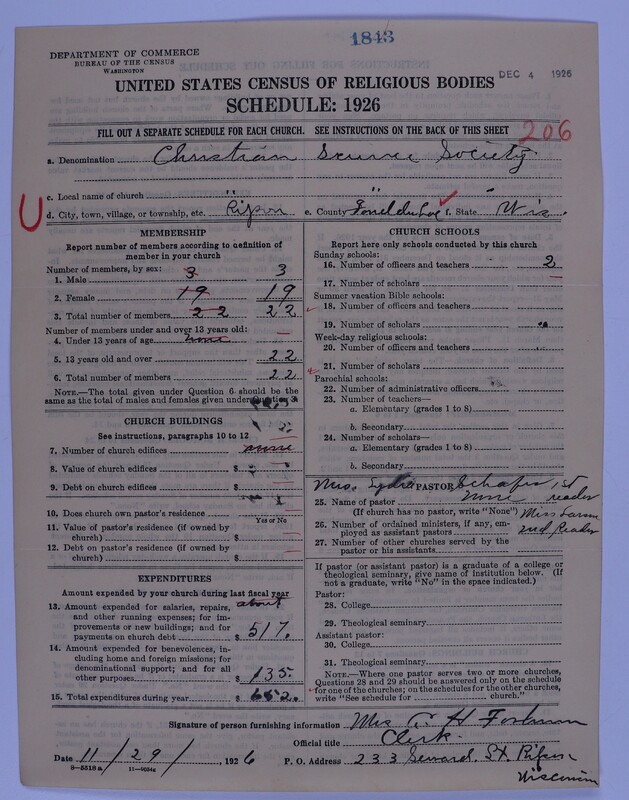 1843
DEPARTMENT OF COMMERCE
BUREAU OF THE CENSUS
WASHINGTON
DEC 4 1926
UNITED STATES CENSUS OF RELIGIOUS BODIES
SCHEDULE: 1926
206
FILL OUT A SEPARATE SCHEDULE FOR EACH CHURCH. SEE INSTRUCTIONS ON THE BACK OF THIS SHEET
a. Denomination Christian Science Society
c. Local name of church " " "
U
d. City, town, village, or township, etc. Ripon e. County Fond du Lac f. State Wis.
MEMBERSHIP
Report number of members according to definition of
member in your church
Number of members, by sex:
1. Male 3 3
2. Female 19 19
3. Total number of members 22 22
Number of members under and over 13 years old:
4. Under 13 years of age none
5. 13 years old and over 22
6. Total number of members 22
NOTE.—The total given under Question 6 should be the
same as the total of males and females given under Question 3.
CHURCH BUILDINGS
See instructions, paragraphs 10 to 12
7. Number of church edifices none
8. Value of church edifices $
9. Debt on church edifices $
10. Does church own pastor's residence?
Yes or No
11. Value of pastor's residence (if owned by
church) $
12. Debt on pastor's residence (if owned by
church) $
EXPENDITURES
Amount expended by your church during last fiscal year
about
13. Amount expended for salaries, repairs,
and other running expenses; for im-
provements or new buildings; and for
payments on church debt $ 517.
14. Amount expended for benevolences, in-
cluding home and foreign missions; for
denominational support; and for all
other purposes $ 135.
15. Total expenditures during year $ 652.
CHURCH SCHOOLS
Report here only schools conducted by this church
Sunday schools:
16. Number of officers and teachers 2
17. Number of scholars
Summer vacation Bible schools:
18. Number of officers and teachers
19. Number of scholars
Week-day religious schools:
20. Number of officers and teachers
21. Number of scholars
Parochial schools:
22. Number of administrative officers
23. Number of teachers—
a. Elementary (grades 1 to 8)
b. Secondary
24. Number of scholars—
a. Elementary (grades 1 to 8)
b. Secondary
PASTOR
Mrs. Lydia Schafer 1st reader
25. Name of pastor none
(If church has no pastor, write "None") Miss
26. Number of ordained ministers, if any, em-
ployed as assistant pastors 2nd Reader
27. Number of other churches served by the
pastor or his assistants
If pastor (or assistant pastor) is a graduate of a college or
theological seminary, give name of institution below. (If
not a graduate, write "No" in the space indicated.)
Pastor:
28. College
29. Theological seminary
Assistant pastor:
30. College
31. Theological seminary
NOTE.—Where one pastor serves two or more churches,
Questions 28 and 29 should be answered only on the schedule
for one of the churches; on the schedules for the other churches,
write "See schedule for church."
Signature of person furnishing information Mrs H
Official title Clerk.
Date 11/29/, 1926 P. O. Address 233 Seward St. Ripon
Wisconsin
8-5518a 11-9024a